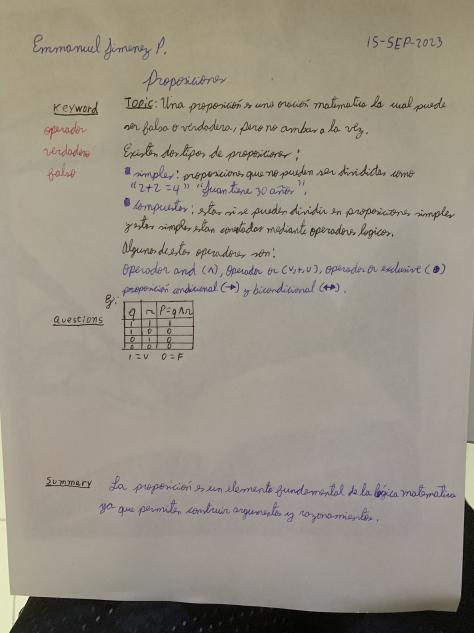 Emmanuel Jimenez P.
15-SEP-2023
Proposiciones
Keyword
operador
verdadero
falso
Topic: Una proposición es una oración matematica la cual puede
ser falsa o verdadera, pero no ambas a la vez.
Existen dos tipos de proposiciones:
simples: proposiciones que no pueden ser divididas como
"2+2=4" "Juan tiene 30 años".
compuestas: estas si se pueden dividir en proposiciones simples
y estas simples estan conectadas mediante operadores logicos.
Algunos de estos operadores son:
operador and (∧), operador or (V,+,U), operador or exclusive (⊕)
proposición condicional (→) y bicondicional (↔).
Ej:
Questions
q r P=q∧r
1 1 1
1 0 0
0 1 0
0 0 0
1=V 0=F
Summary
La proposición es un elemento fundamental de la lógica matematica
ya que permiten construir argumentos y razonamientos.